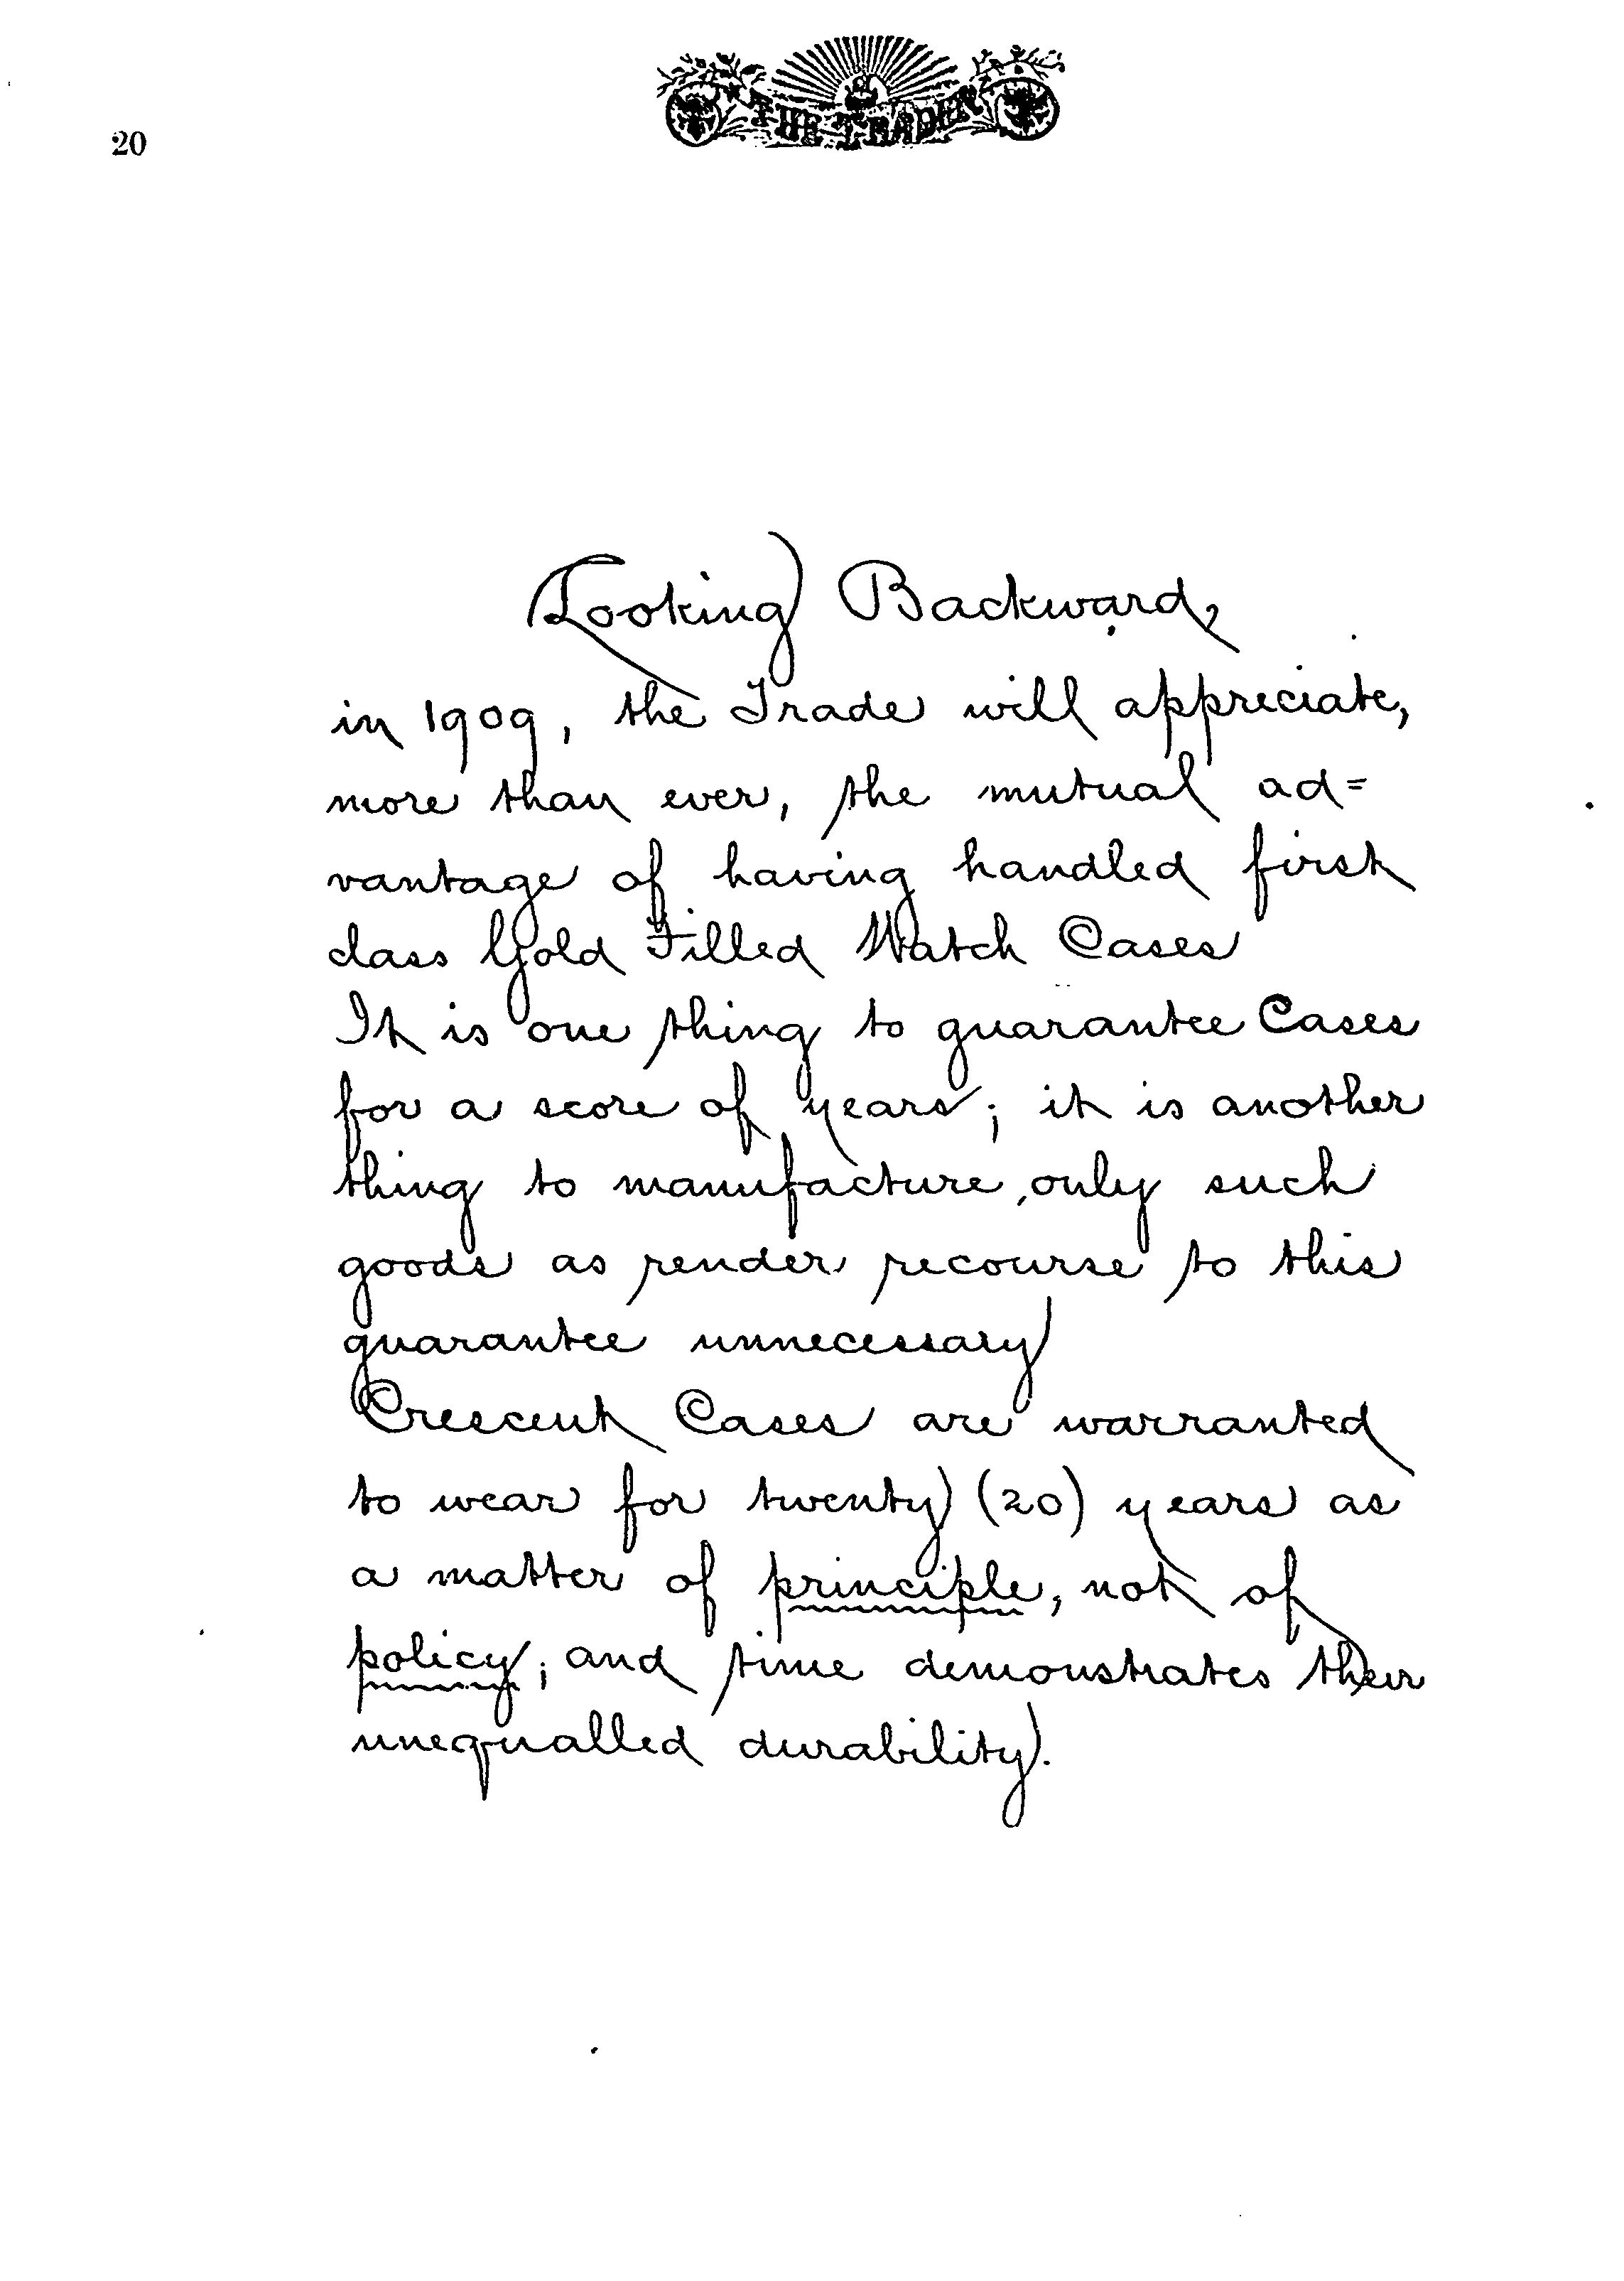 20
THE TRADER
Looking Backward,
in 1909, the Trade will appreciate,
more than ever, the mutual ad=
vantage of having handled first
class Gold Filled Watch Cases
It is one thing to guarantee Cases
for a score of years; it is another
thing to manufacture only such
goods as render recourse to this
guarantee unnecessary
Crescent Cases are warranted
to wear for twenty (20) years as
a matter of principle, not of
policy; and time demonstrates their
unequalled durability.